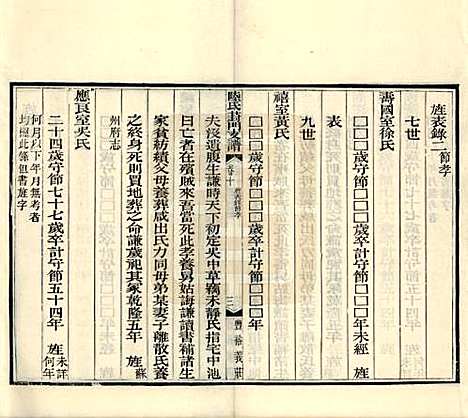 旌表錄二節孝
七世
壽國室徐氏
□□□歲守節□□□歲卒計守節□□□年未經 旌
表
九世
禧室黃氏
□□□歲守節□□□歲卒計守節□□□年
陸氏葑門支譜
卷十
三
豐裕義莊
夫沒遺腹生謙時天下初定吳中草竊未靜氏指宅中池
曰亡者在殯賊來吾當死此孝養舅姑誨謙讀書補諸生
家貧紡績以佐養葬咸出氏力同母弟某妻子離散氏養
之終身死則買地葬之命謙歲祀其家乾隆五年 旌蘇
州府志
應良室吳氏
二十四歲守節七十七歲卒計守節五十四年 旌未詳何年
何月以下年月無考者
均照此條但書旌字